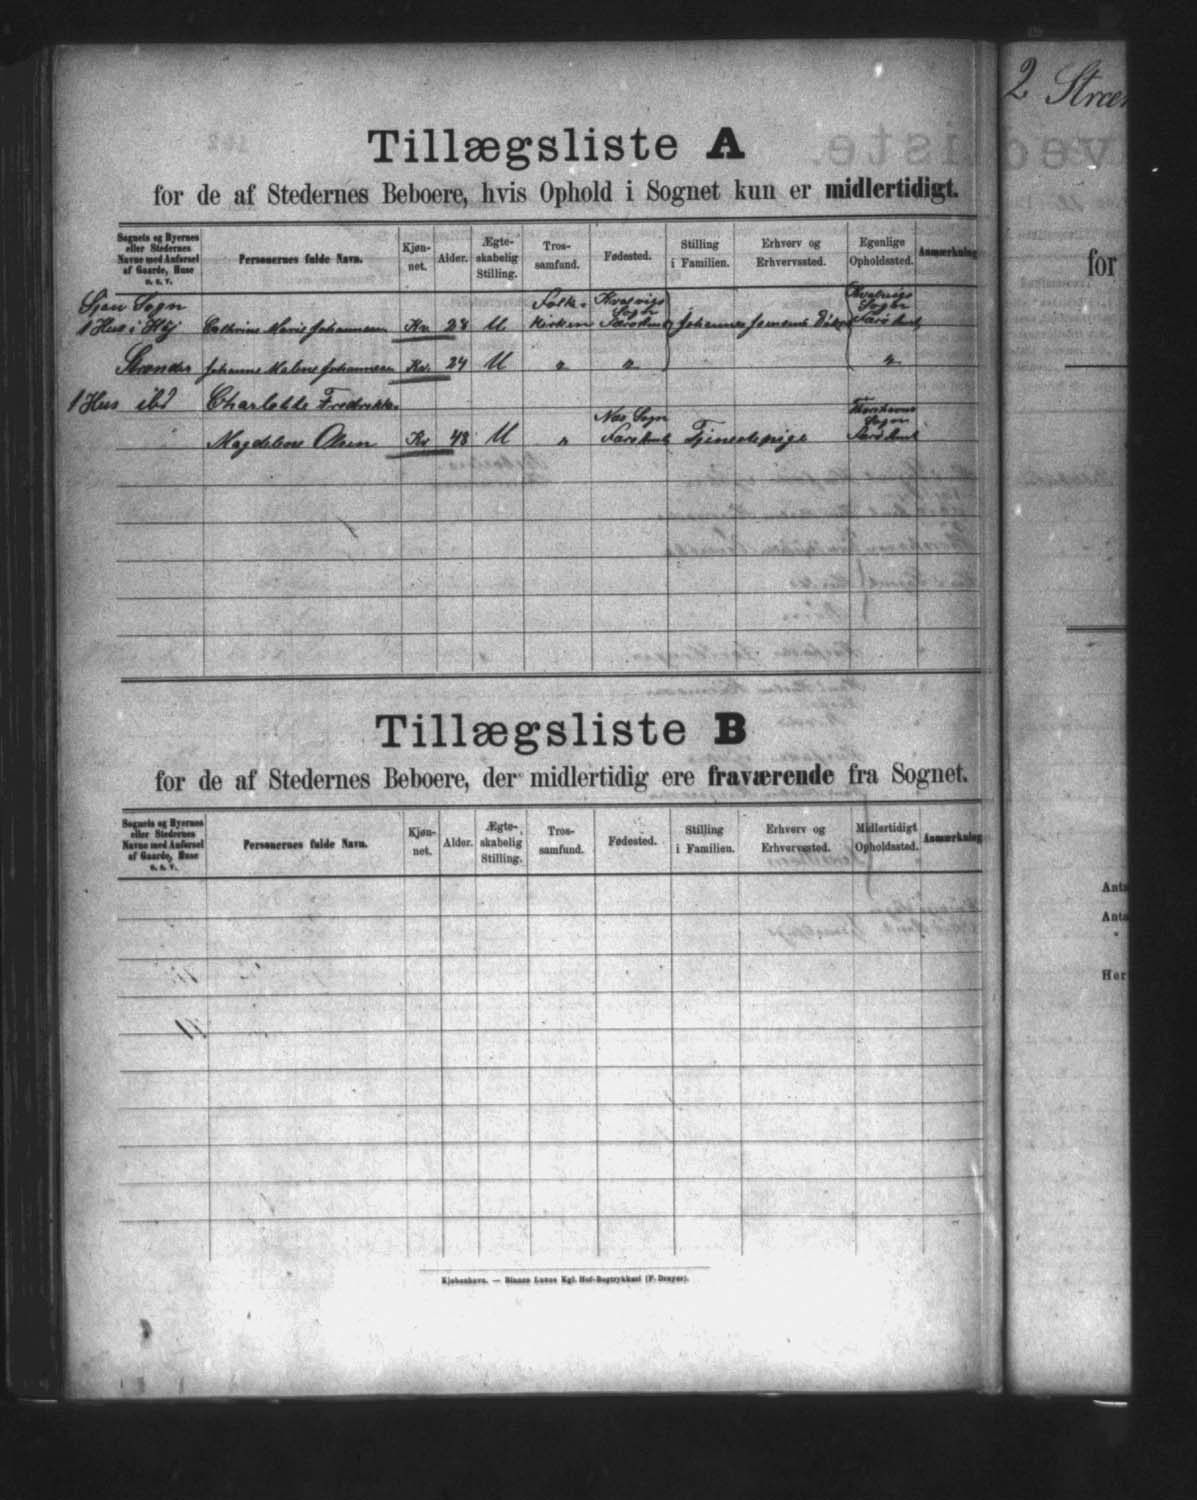 2
Tillægsliste A
for de af Stedernes Beboere, hvis Ophold i Sognet kun er midlertidigt.
Sognets og Byernes eller Stedernes Navne med Anførsel af Gaarde, Huse o. s. v.
Personernes fulde Navn.
Kjøn-
net.
Alder.
Ægte-
skabelig
Stilling.
Tros-
samfund.
Fødested.
Stilling
i Familien.
Erhverv og
Erhvervssted.
Egenlige
Opholdssted.
Anmærkning
Sogn
Folke-
Sogn
Sogn
1 Hus i Cathrine Marie Johannesen Kv. 28 U kirken Færø Amt Færø Amt
Johanne Malene Johannesen Kv. 24 U " " "
1 Hus ibd Charlotte Fredrikke
Næs Sogn Thorshavns Sogn
Magdalene Olsen Kv 48 U " Færø Amt Tjenestepige Færø Amt
Tillægsliste B
for de af Stedernes Beboere, der midlertidig ere fraværende fra Sognet.
Sognets og Byernes eller Stedernes Navne med Anførsel af Gaarde, Huse o. s. v.
Personernes fulde Navn.
Kjøn-
net.
Alder.
Ægte-
skabelig
Stilling.
Tros-
samfund.
Fødested.
Stilling
i Familien.
Erhverv og
Erhvervssted.
Midlertidigt
Opholdssted.
Anmærkning
Kjøbenhavn. — Bianco Lunos Kgl. Hof-Bogtrykkeri (F. Dreyer).
for
Anta
Anta
Her